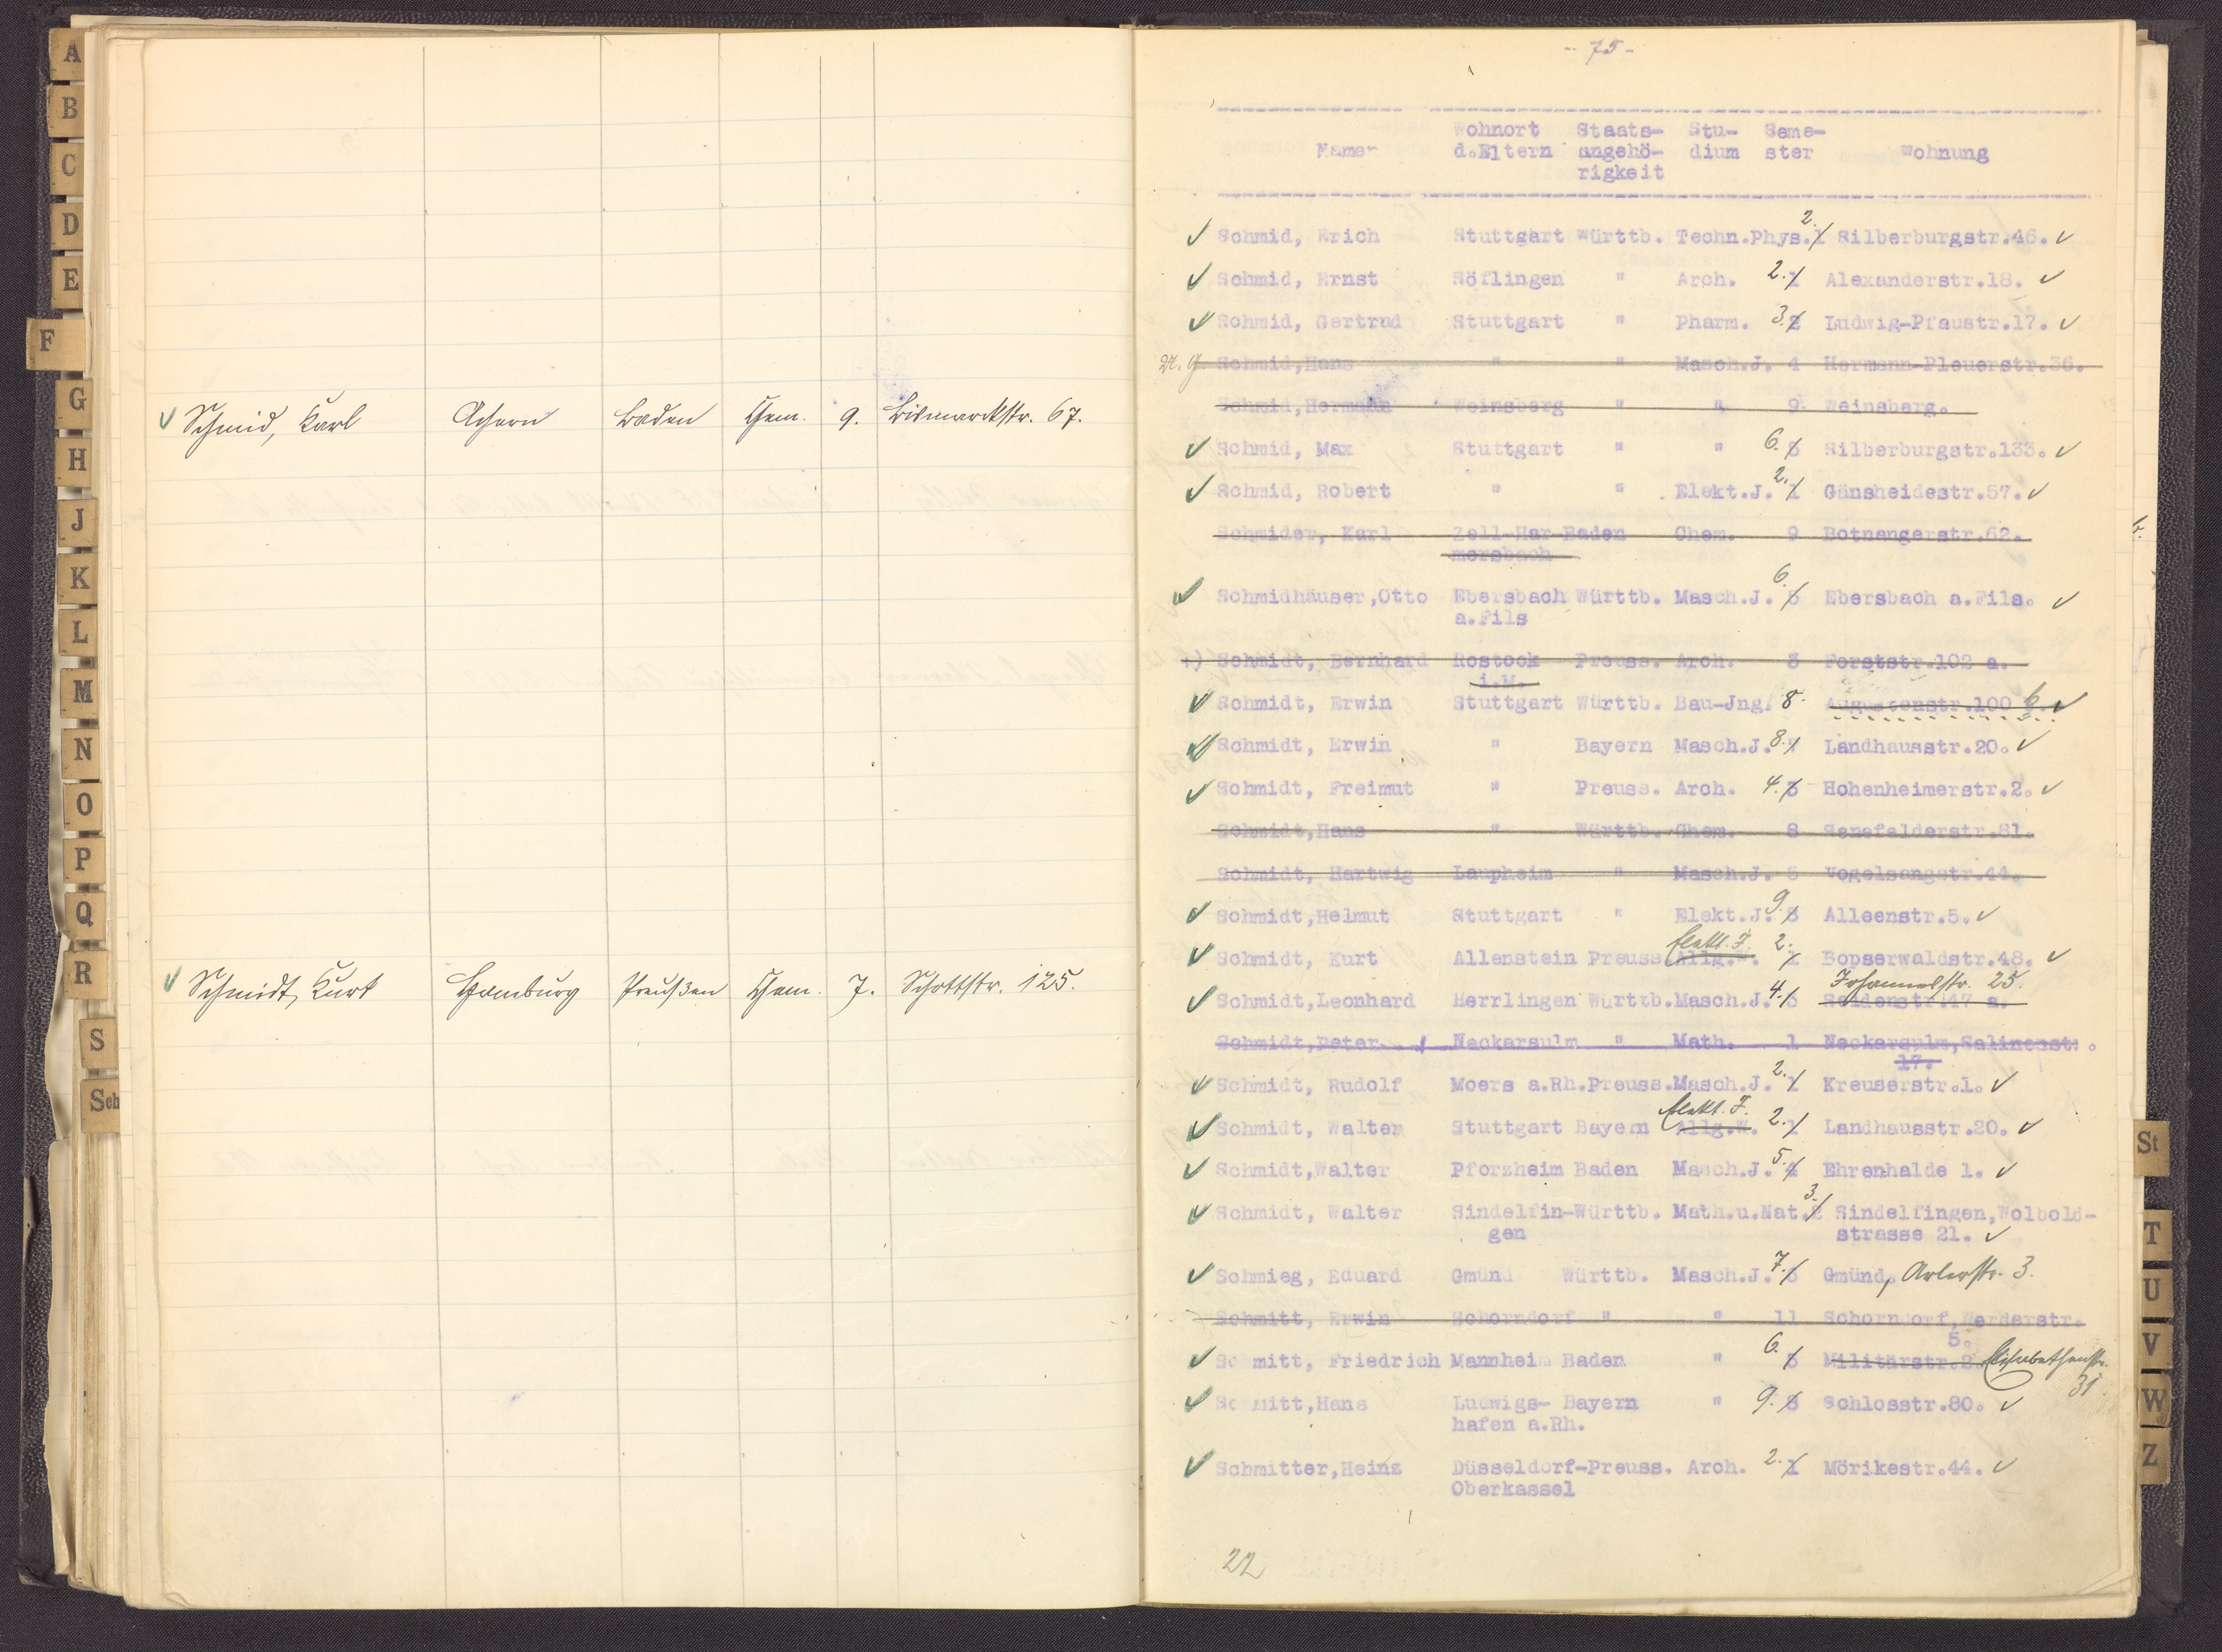 A
B
C
D
E
F
G
H
J
K
L
M
N
O
P
Q
R
S
Sch
Schmid, Karl Achern Baden Chem. 9. Bismarckstr. 67.
Schmidt, Kurt Hamburg Preußen Chem. 7. Schottstr. 125.
- 75 -
Wohnort Staats- Stu- Seme-
Namen d.Eltern angehö- dium ster Wohnung
rigkeit
2.
Schmid, Erich Stuttgart Württb. Techn.Phys.1 Silberburgstr.46.
Schmid, Ernst Söflingen " Arch. 2. 1 Alexanderstr.18.
Schmid, Gertrud Stuttgart " Pharm. 3. 2 Ludwig-Pfaustr.17.
Schmid,Hans " " Masch.J. 4 Hermann-Pleuerstr.36.
Schmid,Hermann Weinsberg " " 9. Weinsberg.
Schmid, Max Stuttgart " " 6. 5 Silberburgstr.133.
Schmid, Robert " " Elekt.J. 2. 1 Gänsheidestr.57.
Schmider, Karl Zell-Har-Baden Chem. 9 Botnangerstr.62.
mersbach
6.
Schmidhäuser,Otto Ebersbach Württb. Masch.J. 5 Ebersbach a.Fils.
a.Fils
Schmidt, Bernhard Rostock Preuss. Arch. 3 Forststr.102 a.
i.M.
Schmidt, Erwin Stuttgart Württb. Bau-Jng. 8. Augustenstr.100 b.
Schmidt, Erwin " Bayern Masch.J. 8. 7 Landhausstr.20.
Schmidt, Freimut " Preuss. Arch. 4. 3 Hohenheimerstr.2.
Schmidt,Hans " Württb. Chem. 8 Senefelderstr.81.
Schmidt, Hartwig Laupheim " Masch.J. 5 Vogelsangstr.44.
Schmidt,Helmut Stuttgart " Elekt.J. 9. 8 Alleenstr.5.
Elekt. J. 2.
Schmidt, Kurt Allenstein Preuss Allg.W. 1 Bopserwaldstr.48.
Johannesstr. 25.
Schmidt,Leonhard Herrlingen Württb.Masch.J. 4. 3 Seidenstr.47 a.
Schmidt,Peter Neckarsulm " Math. 1 Neckarsulm,Salinenstr.
17.
Schmidt, Rudolf Moers a.Rh.Preuss.Masch.J. 2. 1 Kreuserstr.1.
Elekt. J.
Schmidt, Walter Stuttgart Bayern Allg.W. 2. 1 Landhausstr.20.
Schmidt,Walter Pforzheim Baden Masch.J. 5. 4 Ehrenhalde 1.
3.
Schmidt, Walter Sindelfin-Württb. Math.u.Nat.2 Sindelfingen,Wolbold-
gen strasse 21.
Schmieg, Eduard Gmünd Württb. Masch.J. 7. Gmünd, Arlerstr. 3.
Schmitt, Erwin Schorndorf " " 11 Schorndorf,Werderstr.
5.
Schmitt, Friedrich Mannheim Baden " 6. 5 Militärstr.2. Elisabethenstr.
31.
Schmitt,Hans Ludwigs- Bayern " 9. 8 Schlosstr.80.
hafen a.Rh.
Schmitter,Heinz Düsseldorf-Preuss. Arch. 2. 1 Mörikestr.44.
Oberkassel
22
St
T
U
V
W
Z